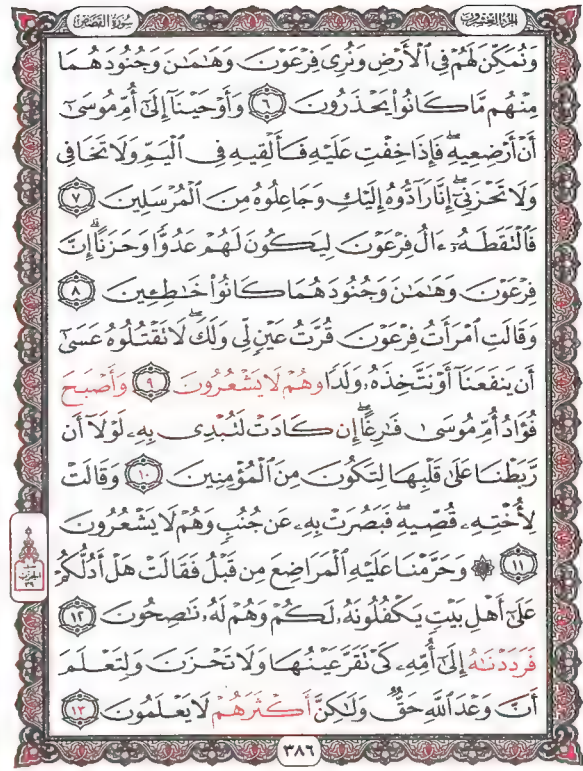 الجزء العشرون
سورة القصص
وَنُمَكِّنَ لَهُمْ فِي الْأَرْضِ وَنُرِيَ فِرْعَوْنَ وَهَامَانَ وَجُنُودَهُمَا
مِنْهُم مَّا كَانُوا۟ يَحْذَرُونَ ٦ وَأَوْحَيْنَآ إِلَىٰٓ أُمِّ مُوسَىٰٓ
أَنْ أَرْضِعِيهِ ۖ فَإِذَا خِفْتِ عَلَيْهِ فَأَلْقِيهِ فِي الْيَمِّ وَلَا تَخَافِي
وَلَا تَحْزَنِيٓ ۖ إِنَّا رَآدُّوهُ إِلَيْكِ وَجَاعِلُوهُ مِنَ الْمُرْسَلِينَ ٧
فَالْتَقَطَهُۥٓ ءَالُ فِرْعَوْنَ لِيَكُونَ لَهُمْ عَدُوًّا وَحَزَنًا ۗ إِنَّ
فِرْعَوْنَ وَهَٰمَٰنَ وَجُنُودَهُمَا كَانُوا۟ خَٰطِـِٔينَ ٨
وَقَالَتِ امْرَأَتُ فِرْعَوْنَ قُرَّتُ عَيْنٍ لِّي وَلَكَ ۖ لَا تَقْتُلُوهُ عَسَىٰٓ
أَن يَنفَعَنَآ أَوْ نَتَّخِذَهُۥ وَلَدًا وَهُمْ لَا يَشْعُرُونَ ٩ وَأَصْبَحَ
فُؤَادُ أُمِّ مُوسَىٰ فَٰرِغًا ۖ إِن كَادَتْ لَتُبْدِي بِهِۦ لَوْلَآ أَن
رَّبَطْنَا عَلَىٰ قَلْبِهَا لِتَكُونَ مِنَ الْمُؤْمِنِينَ ١٠ وَقَالَتْ
لِأُخْتِهِۦ قُصِّيهِ ۖ فَبَصُرَتْ بِهِۦ عَن جُنُبٍ وَهُمْ لَا يَشْعُرُونَ
١١ ۞ وَحَرَّمْنَا عَلَيْهِ الْمَرَاضِعَ مِن قَبْلُ فَقَالَتْ هَلْ أَدُلُّكُمْ
عَلَىٰٓ أَهْلِ بَيْتٍ يَكْفُلُونَهُۥ لَكُمْ وَهُمْ لَهُۥ نَٰصِحُونَ ١٢
فَرَدَدْنَٰهُ إِلَىٰٓ أُمِّهِۦ كَيْ تَقَرَّ عَيْنُهَا وَلَا تَحْزَنَ وَلِتَعْلَمَ
أَنَّ وَعْدَ اللَّهِ حَقٌّ وَلَٰكِنَّ أَكْثَرَهُمْ لَا يَعْلَمُونَ ١٣
٣٨٦
الحزب
٣٩